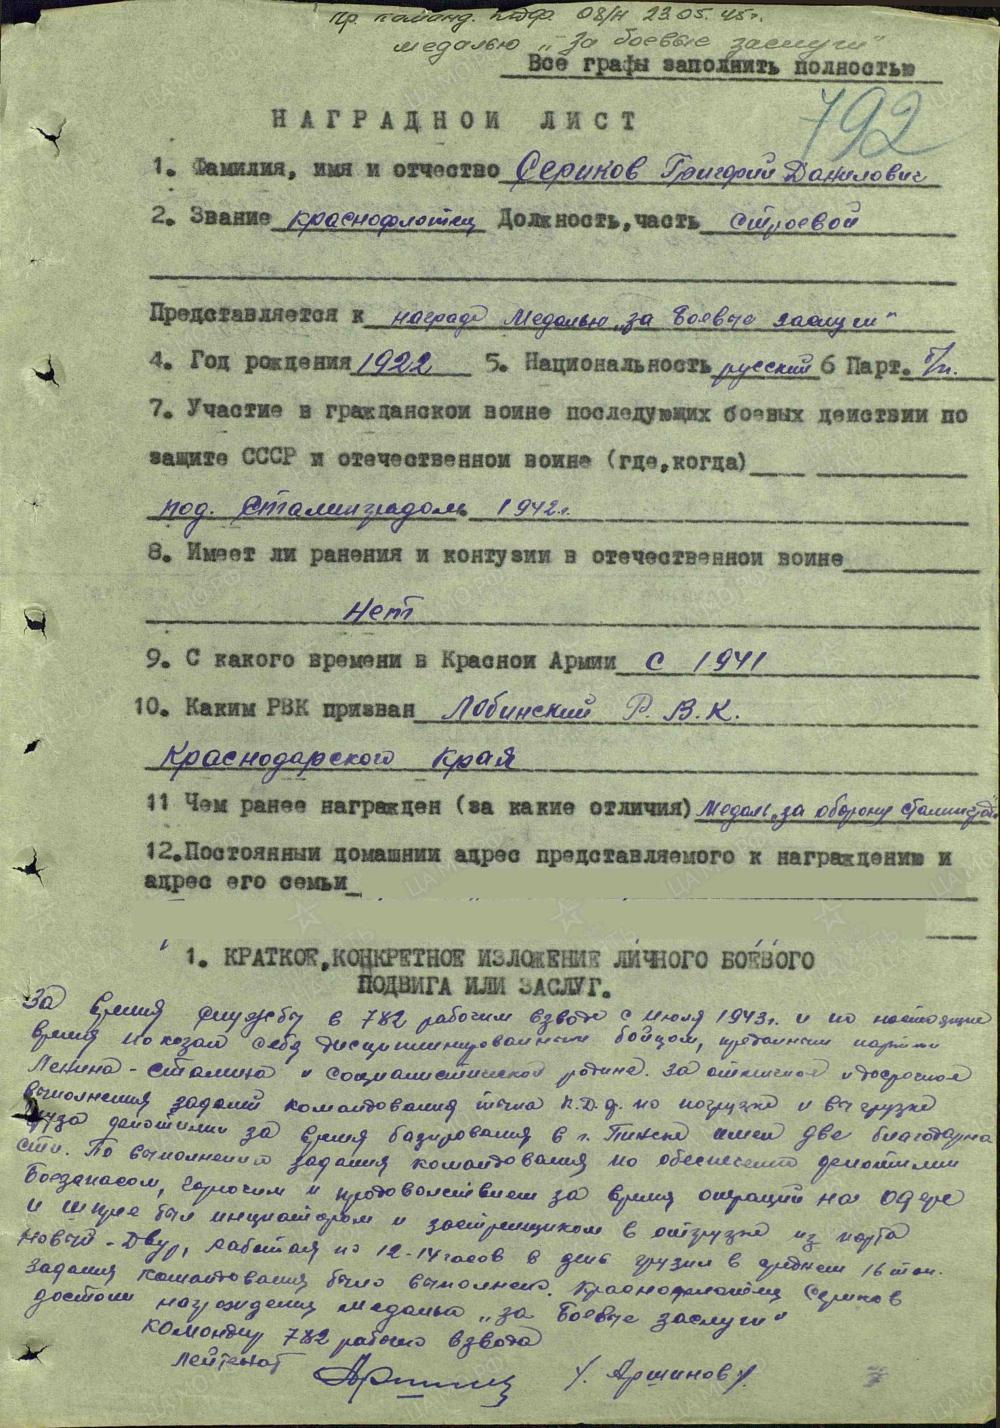 Пр. команд. КДФ 08/н 23.05.45г.
медалью „За боевые заслуги"
Все графы заполнить полностью
792
НАГРАДНОИ ЛИСТ
1. Фамилия, имя и отчество Сериков Григорий Данилович
2. Звание краснофлотец Должность, часть строевой
Представляется к награде Медалью „за Боевые заслуги"
4. Год рождения 1922 5. Национальность русский 6 Парт. б/п.
7. Участие в гражданскои воине последующих боевых деиствии по
защите СССР и отечественнои воине (где, когда)
под. Сталинградом 1942г.
8. Имеет ли ранения и контузии в отечественнои воине
Нет
9. С какого времени в Краснои Армии с 1941
10. Каким РВК призван Лабинский Р.В.К.
Краснодарского Края
11 Чем ранее награжден (за какие отличия) Медаль „за оборону Сталинграда"
12. Постоянныи домашнии адрес представляемого к награждению и
адрес его семьи
1. КРАТКОЕ, КОНКРЕТНОЕ ИЗЛОЖЕНИЕ ЛИЧНОГО БОЕВОГО
ПОДВИГА ИЛИ ЗАСЛУГ.
За время службы в 782 рабочем взводе с июля 1943г. и по настоящие
время показал себя дисциплинированным бойцом, преданным партии
Ленина-Сталина и социалистической родине. За отличное и досрочное
выполнения заданий командования тыла К.Д.Ф. по погрузке и выгрузке
груза флотилии за время базирования в г. Пинске имел две благодарно
сти. По выполнению задания командования по обеспечению флотилии
Боезапасом, горючим и продовольствием за время операций на Одере
и Шпрее был инициатором и застрельщиком в отгрузке из порта
Новый-Двур, работая по 12-14 часов в день грузил в среднем 16 тон.
Задания командования было выполнено. Краснофлотец Сериков
достоин награждения медалью „за Боевые заслуги"
Командир 782 рабочего взвода
лейтенат /Аршинов/.